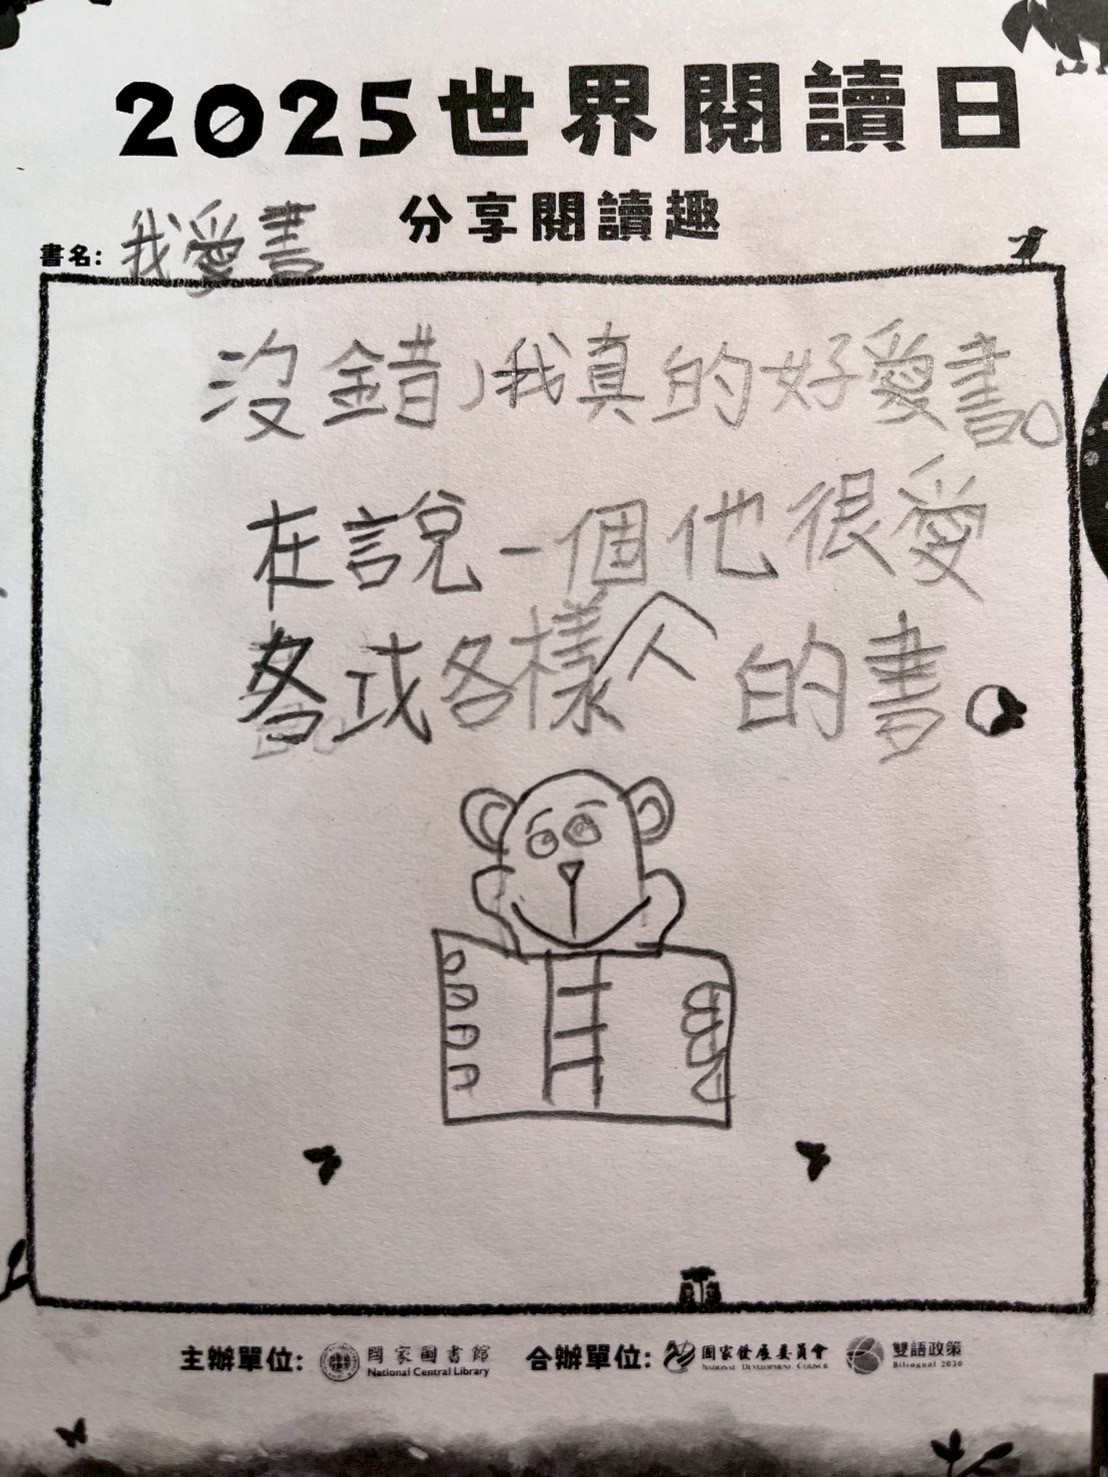 2025世界閱讀日
分享閱讀趣
書名: 我愛書
沒錯，我真的好愛書。
在說一個他很愛
各式各樣的書。人
主辦單位: 國家圖書館 National Central Library 合辦單位: 國家發展委員會 National Development Council 雙語政策 Bilingual 2030